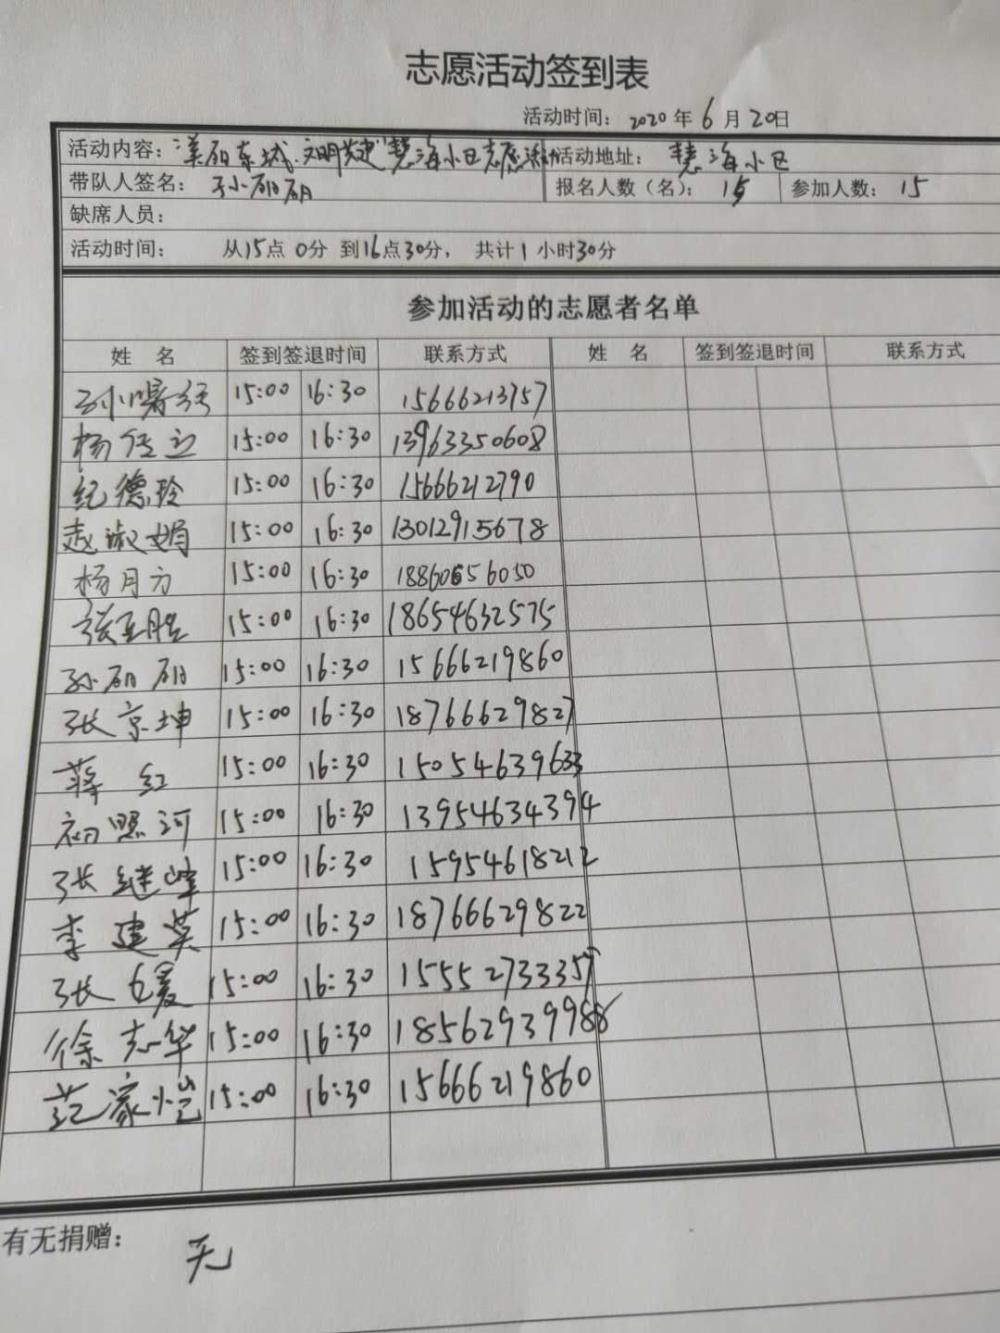 志愿活动签到表
活动时间：2020年6月20日
活动内容：美丽东城·文明共建"慧海小区志愿活动 活动地址：慧海小区
带队人签名：孙丽丽 报名人数（名）：15 参加人数：15
缺席人员：
活动时间： 从15点0分 到16点30分， 共计1小时30分
参加活动的志愿者名单
姓 名 签到签退时间 联系方式 姓 名 签到签退时间 联系方式
15:00 16:30 15666213757
杨传立 15:00 16:30 13963350608
纪德玲 15:00 16:30 15666212790
赵淑娟 15:00 16:30 13012915678
杨月方 15:00 16:30 18860656050
张玉胜 15:00 16:30 18654632575
孙丽丽 15:00 16:30 15666219860
张京坤 15:00 16:30 18766629827
蒋红 15:00 16:30 15054639633
初照河 15:00 16:30 13954634394
张继峰 15:00 16:30 15954618212
李建英 15:00 16:30 18766629822
张 15:00 16:30 15552733357
徐志华 15:00 16:30 18562939988
范家恺 15:00 16:30 15666219860
有无捐赠： 无